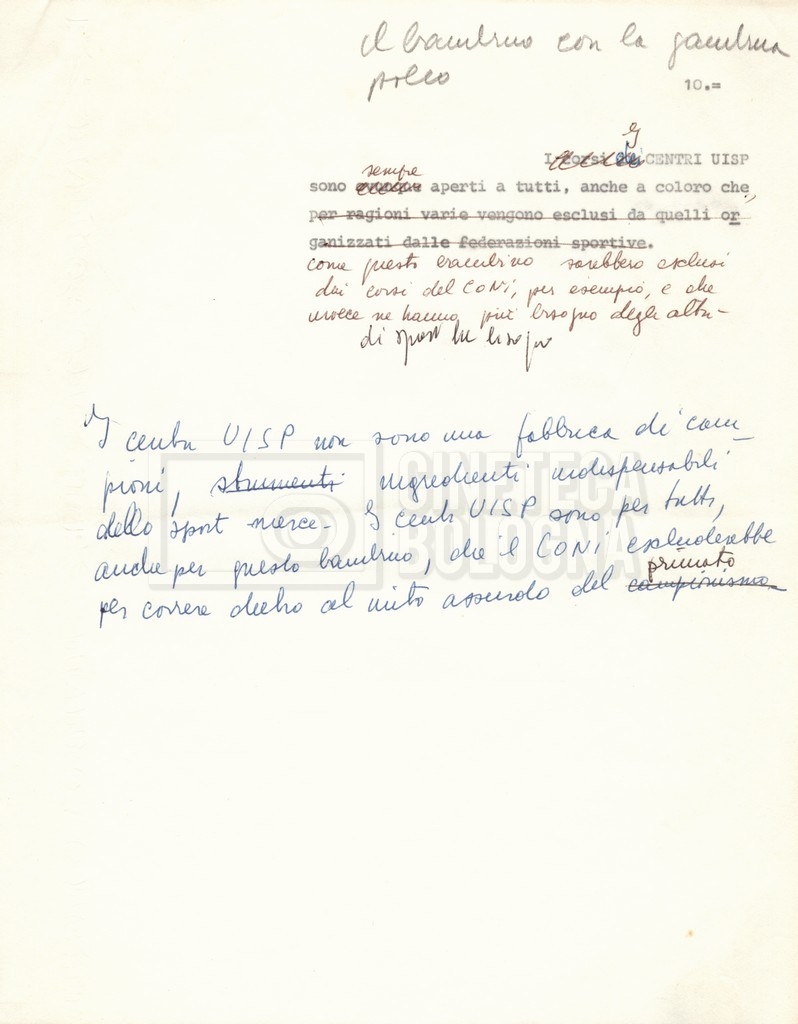 il bambino con la gambina
polio
10.=
I
I corsi dei CENTRI UISP
sempre
sono ovunque aperti a tutti, anche a coloro che,
per ragioni varie vengono esclusi da quelli or
ganizzati dalle federazioni sportive.
come questo bambino sarebbero esclusi
dai corsi del CONI, per esempio, e che
invece ne hanno più bisogno degli altri-
di sport ha bisogno
I centri UISP non sono una fabbrica di cam-
pioni, strumenti ingredienti indispensabili
dello sport merce- I centri UISP sono per tutti,
anche per questo bambino, che il CONI escluderebbe
primato
per correre dietro al mito assurdo del campionismo
CINETECA
BOLOGNA